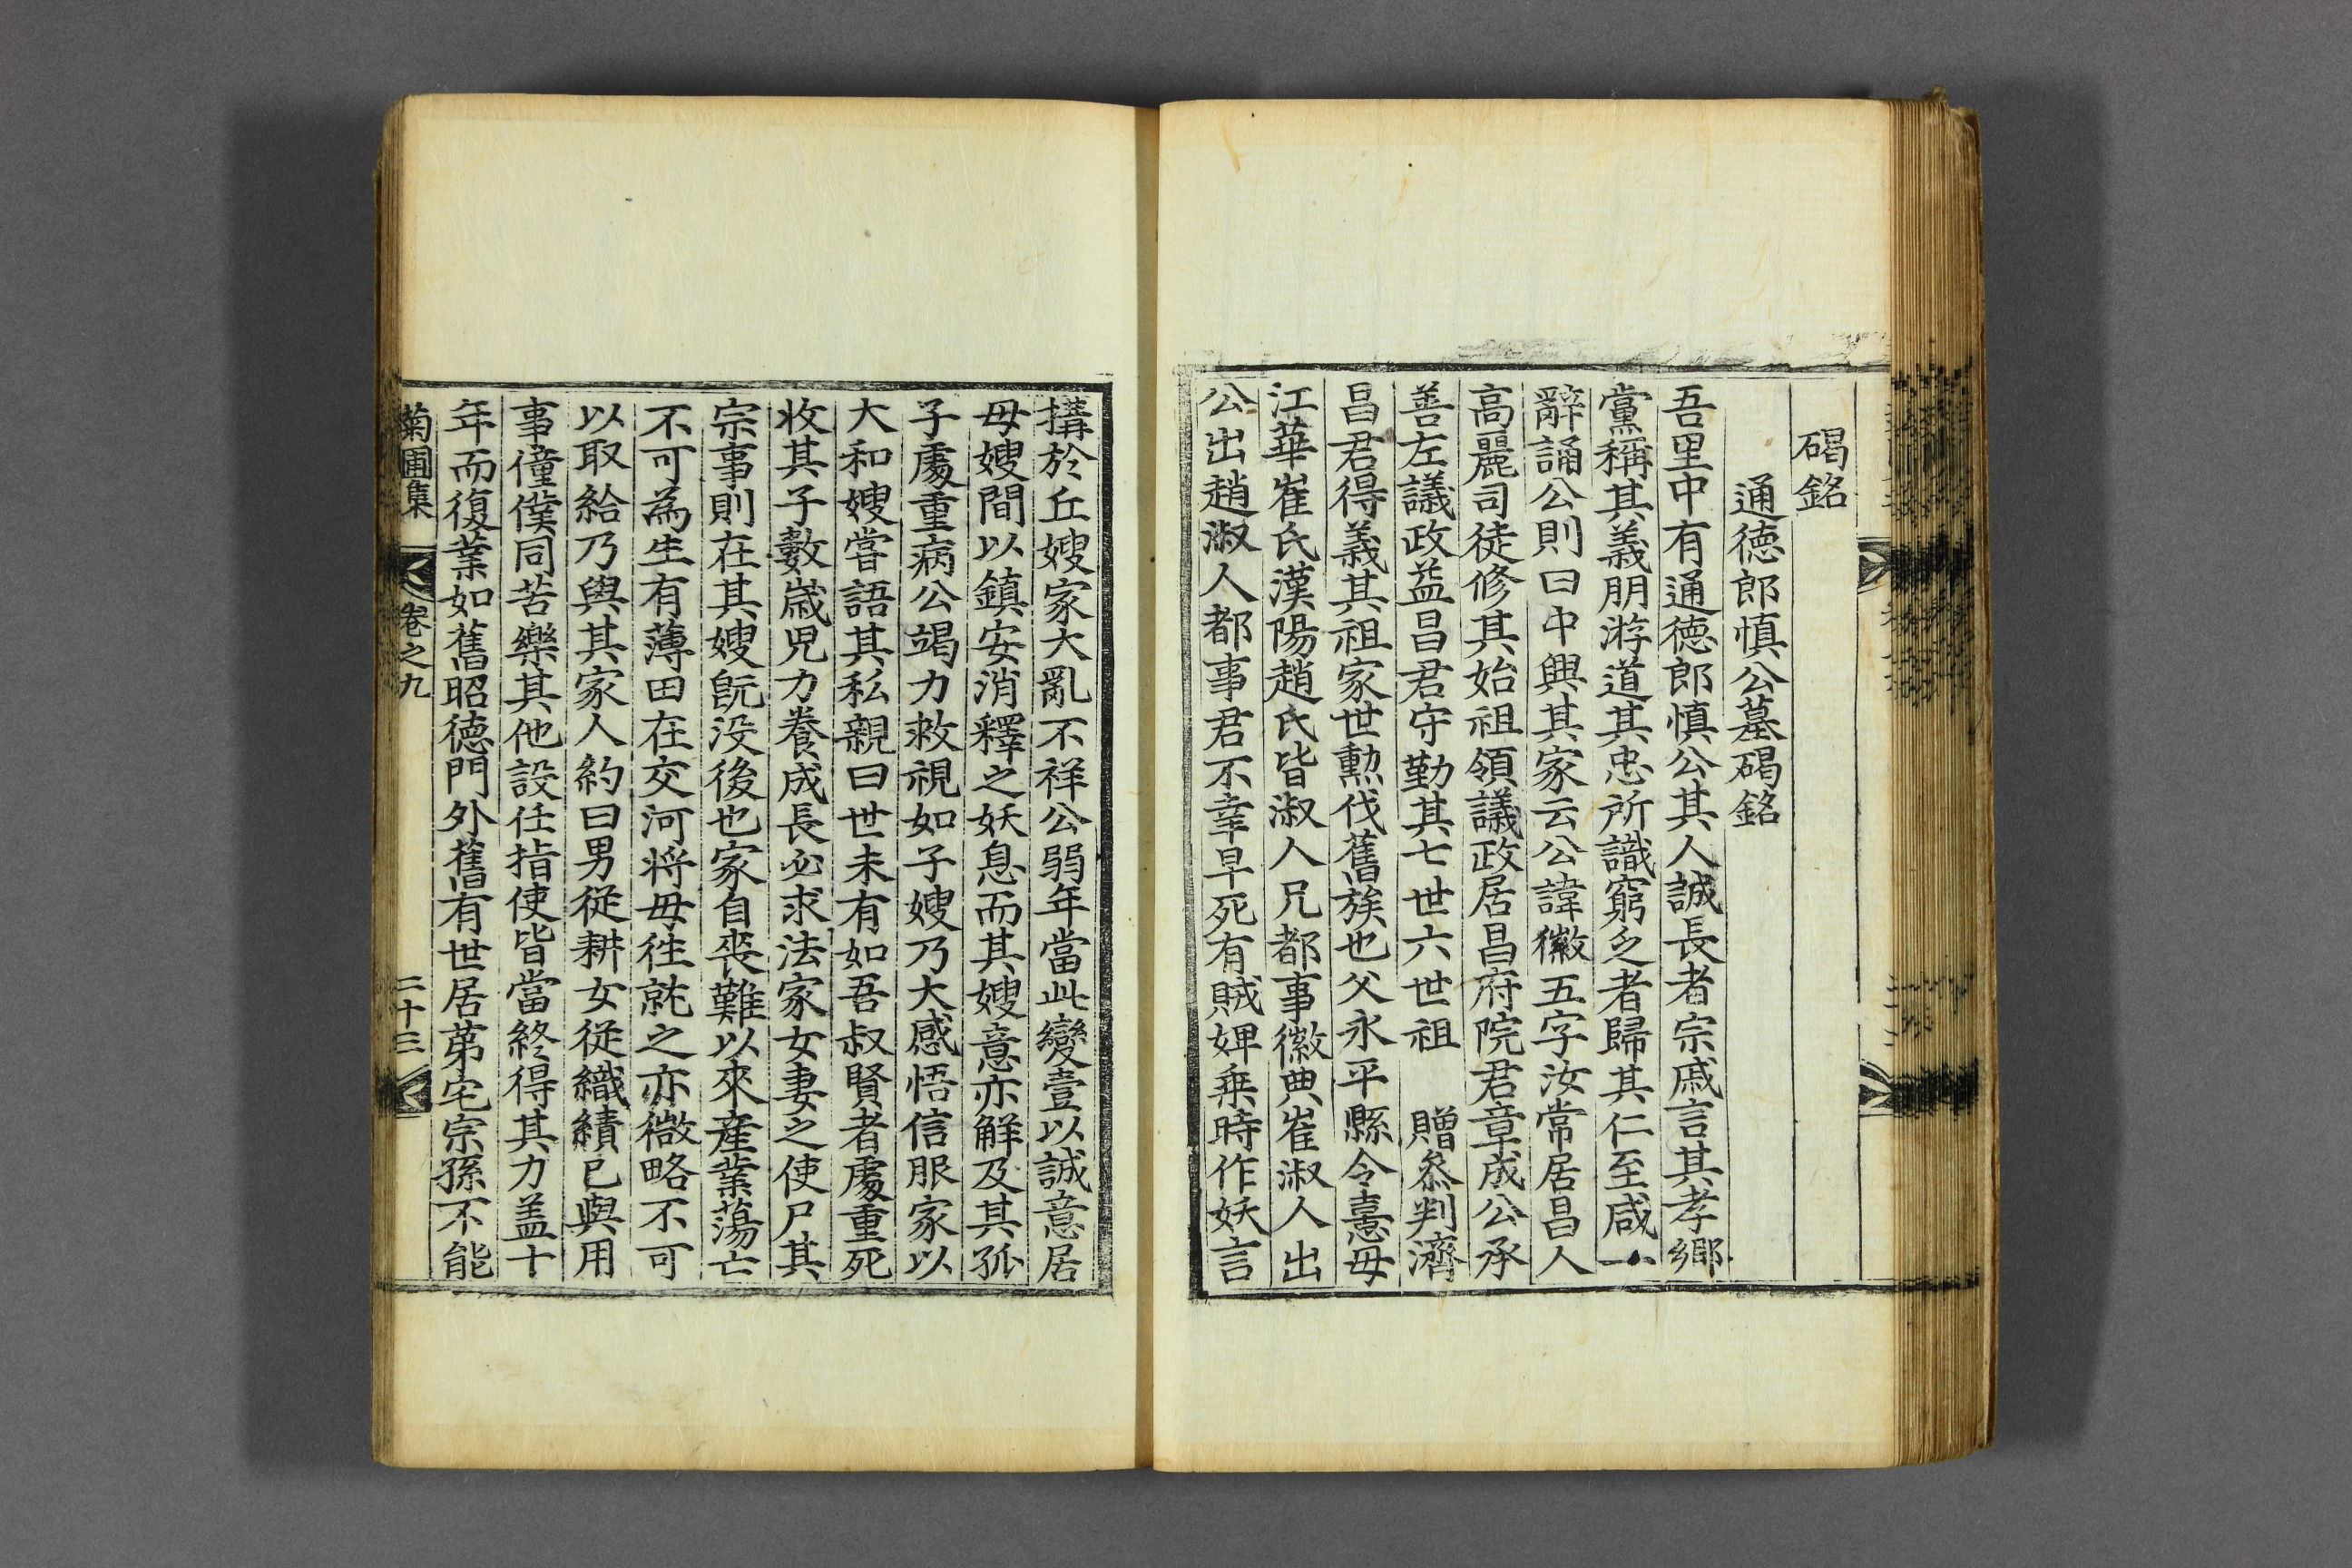 碣銘
通德郎愼公墓碣銘
吾里中有通德郎愼公其人誠長者宗戚言其孝鄉
黨稱其義朋游道其忠所識窮乏者歸其仁至咸一
辭誦公則曰中興其家云公諱徽五字汝常居昌人
高麗司徒修其始祖領議政居昌府院君章成公承
善左議政益昌君守勤其七世六世祖 贈叅判濟
昌君得義其祖家世勲伐舊族也父永平縣令憙母
江華崔氏漢陽趙氏皆淑人兄都事徽典崔淑人出
公出趙淑人都事君不幸早死有賊婢乗時作妖言
搆於丘嫂家大亂不祥公弱年當此變壹以誠意居
母嫂間以鎮安消釋之妖息而其嫂意亦解及其孤
子處重病公竭力救視如子嫂乃大感悟信服家以
大和嫂嘗語其私親曰世未有如吾叔賢者處重死
收其子數歲児力養成長必求法家女妻之使尸其
宗事則在其嫂旣没後也家自喪難以來產業蕩亡
不可為生有薄田在交河将毋徃就之亦微略不可
以取給乃與其家人約曰男從耕女從織績已與用
事僮僕同苦樂其他設任指使皆當終得其力盖十
年而復業如舊昭德門外舊有世居第宅宗孫不能
菊圃集 卷之九 二十三